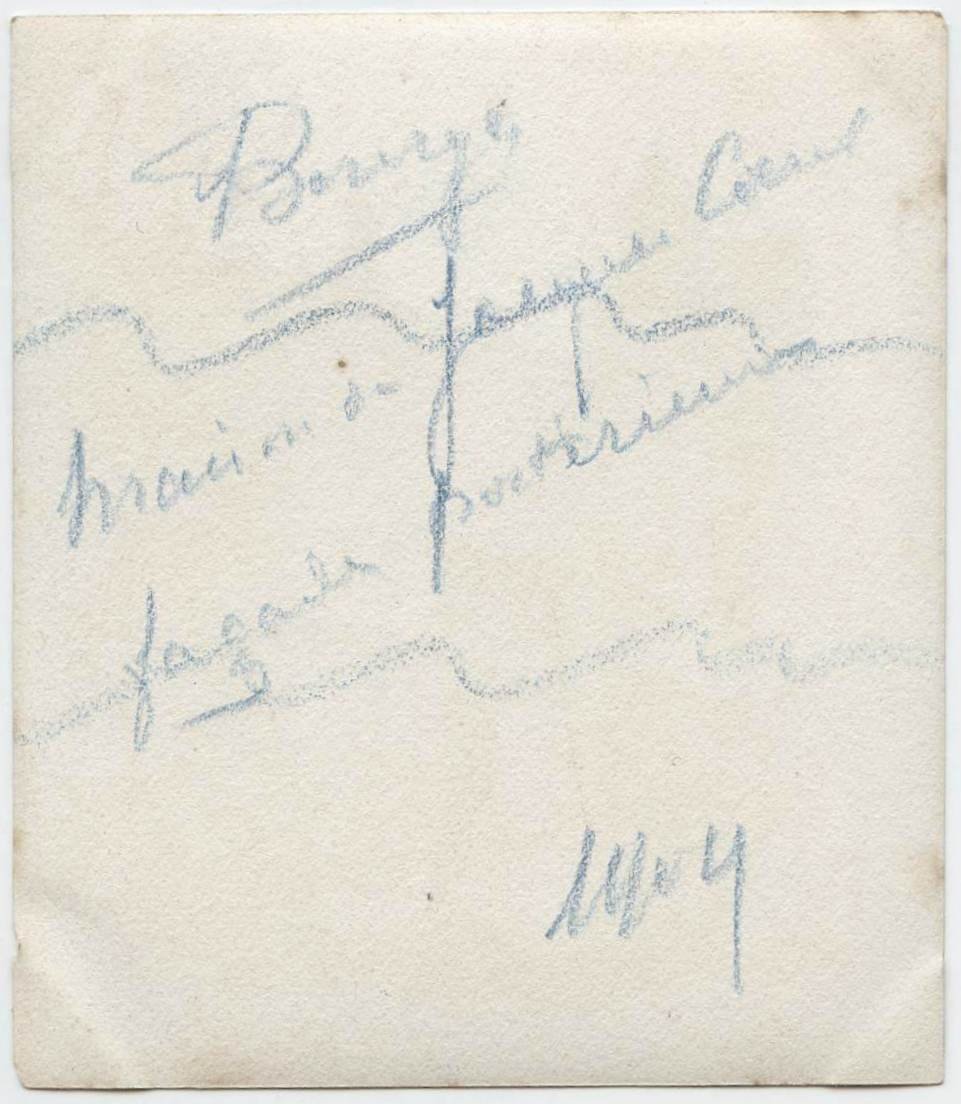 Bourges
Maison de Jacques Coeur
façade postérieure